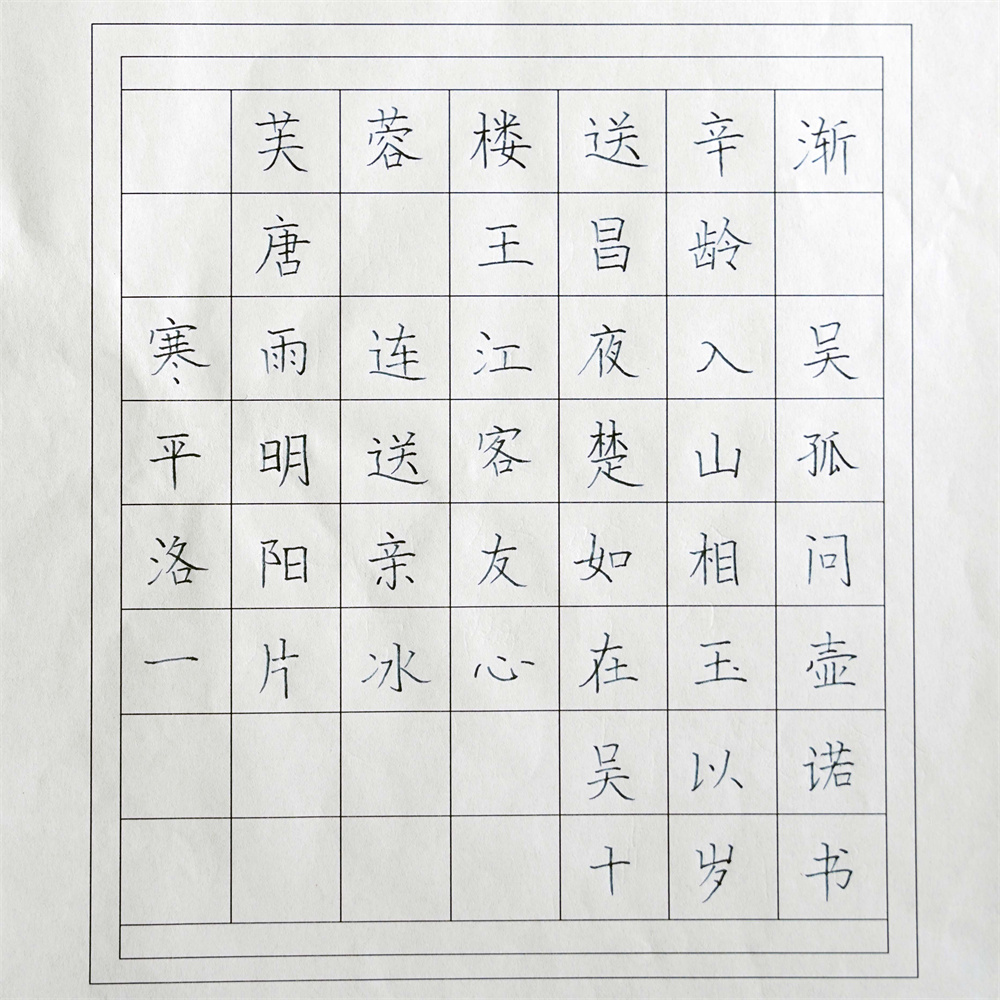 芙蓉楼送辛渐
唐 王昌龄
寒雨连江夜入吴
平明送客楚山孤
洛阳亲友如相问
一片冰心在玉壶
吴以诺
十岁书